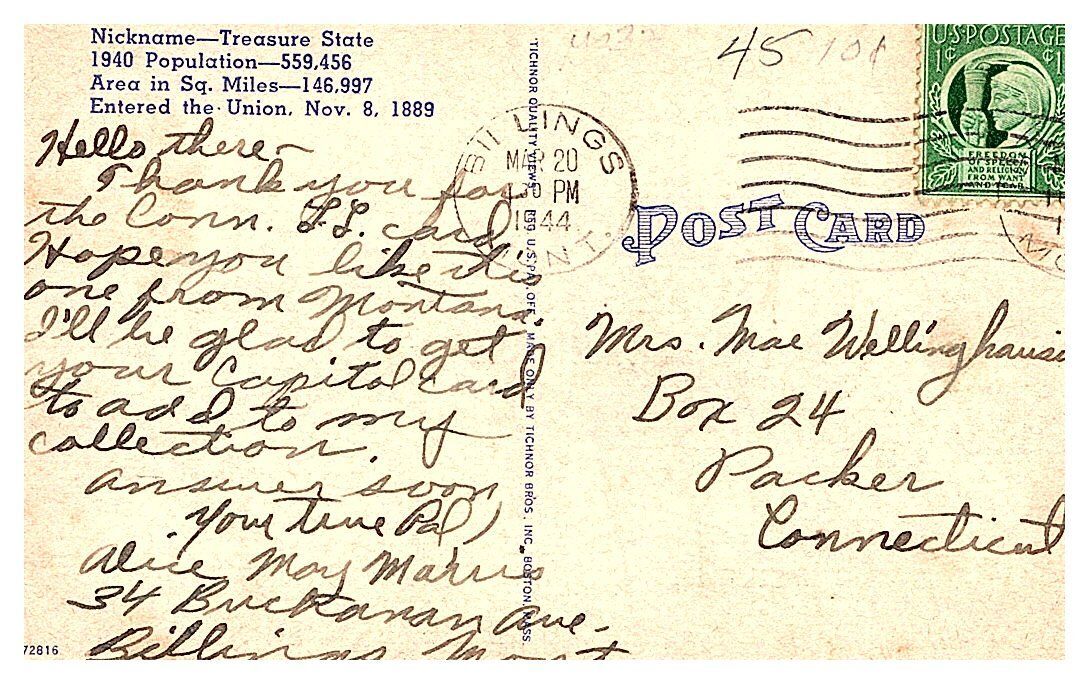 Nickname—Treasure State
1940 Population—559,456
Area in Sq. Miles—146,997
Entered the Union, Nov. 8, 1889
Hello there—
Thank you for
the Conn. LL. card
Hope you like this
one from Montana.
I'll be glad to get
your Capitol card
to add to my
collection.
answer soon
Your true Pal,
Alice May Marris
34 Buchanan Ave.
Billings Mont
72816
TICHNOR QUALITY VIEWS
U.S. PAT. OFF. MADE ONLY BY TICHNOR BROS. INC. BOSTON, MASS.
BILLINGS
MAR 20
PM
1944
MONT.
45 10¢
U.S. POSTAGE
1¢ 1¢
FREEDOM
OF SPEECH
AND RELIGION
FROM WANT
AND FEAR
POST CARD
Mrs. Mae Wellinghausi
Box 24
Packer
Connecticut